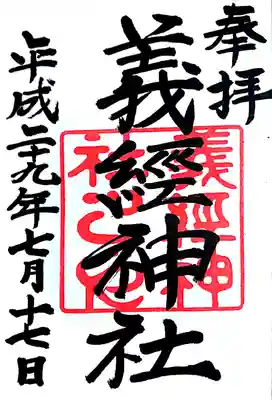 奉拝
義經神社
義經神社之印
平成二十九年七月十七日